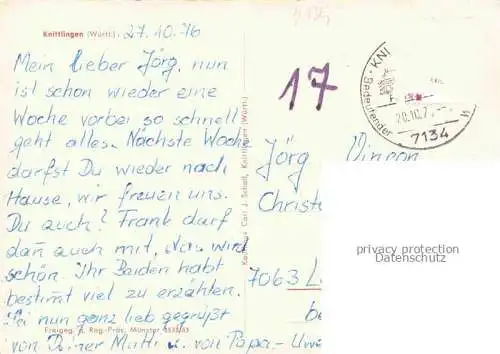 Knittlingen (Württ.) 27.10.76
Mein lieber Jörg, nun
ist schon wieder eine
Woche vorbei so schnell
geht alles. Nächste Woche
darfst Du wieder nach
Hause, wir freuen uns.
Du auch? Frank darf
dann auch mit. Das wird
schön. Ihr Beiden habt
bestimmt viel zu erzählen.
Sei nun ganz lieb gegrüßt
Freigeg. d. Reg.-Präs. Münster
von Deiner Mutti u. von Papa - Uwe
Carl J. Scholl, Knittlingen (Württ.)
17
KNI
Bedeutender
28.10.7
7134
Jörg
Christ
7063
be
privacy protection
Datenschutz